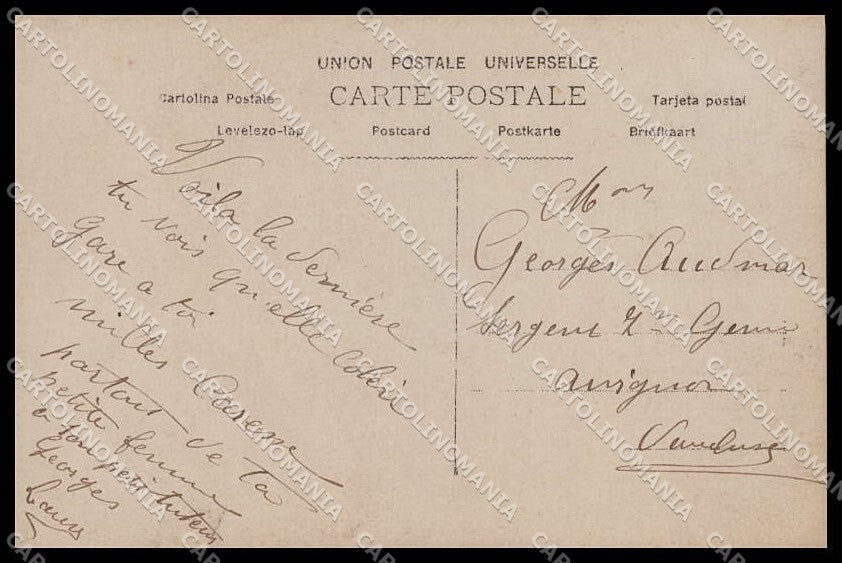 UNION POSTALE UNIVERSELLE
CARTE POSTALE
Cartolina Postale
Tarjeta postal
Levelezo-lap
Postcard
Postkarte
Briefkaart
Voila la dernière
tu vois qu'elle
Gare a toi
milles Caresse
partout de ta
petite femme
a son petit
Georges
Mon
Georges Audmar
Sergent Genie
Avignon
Vaucluse
CARTOLINOMANIA